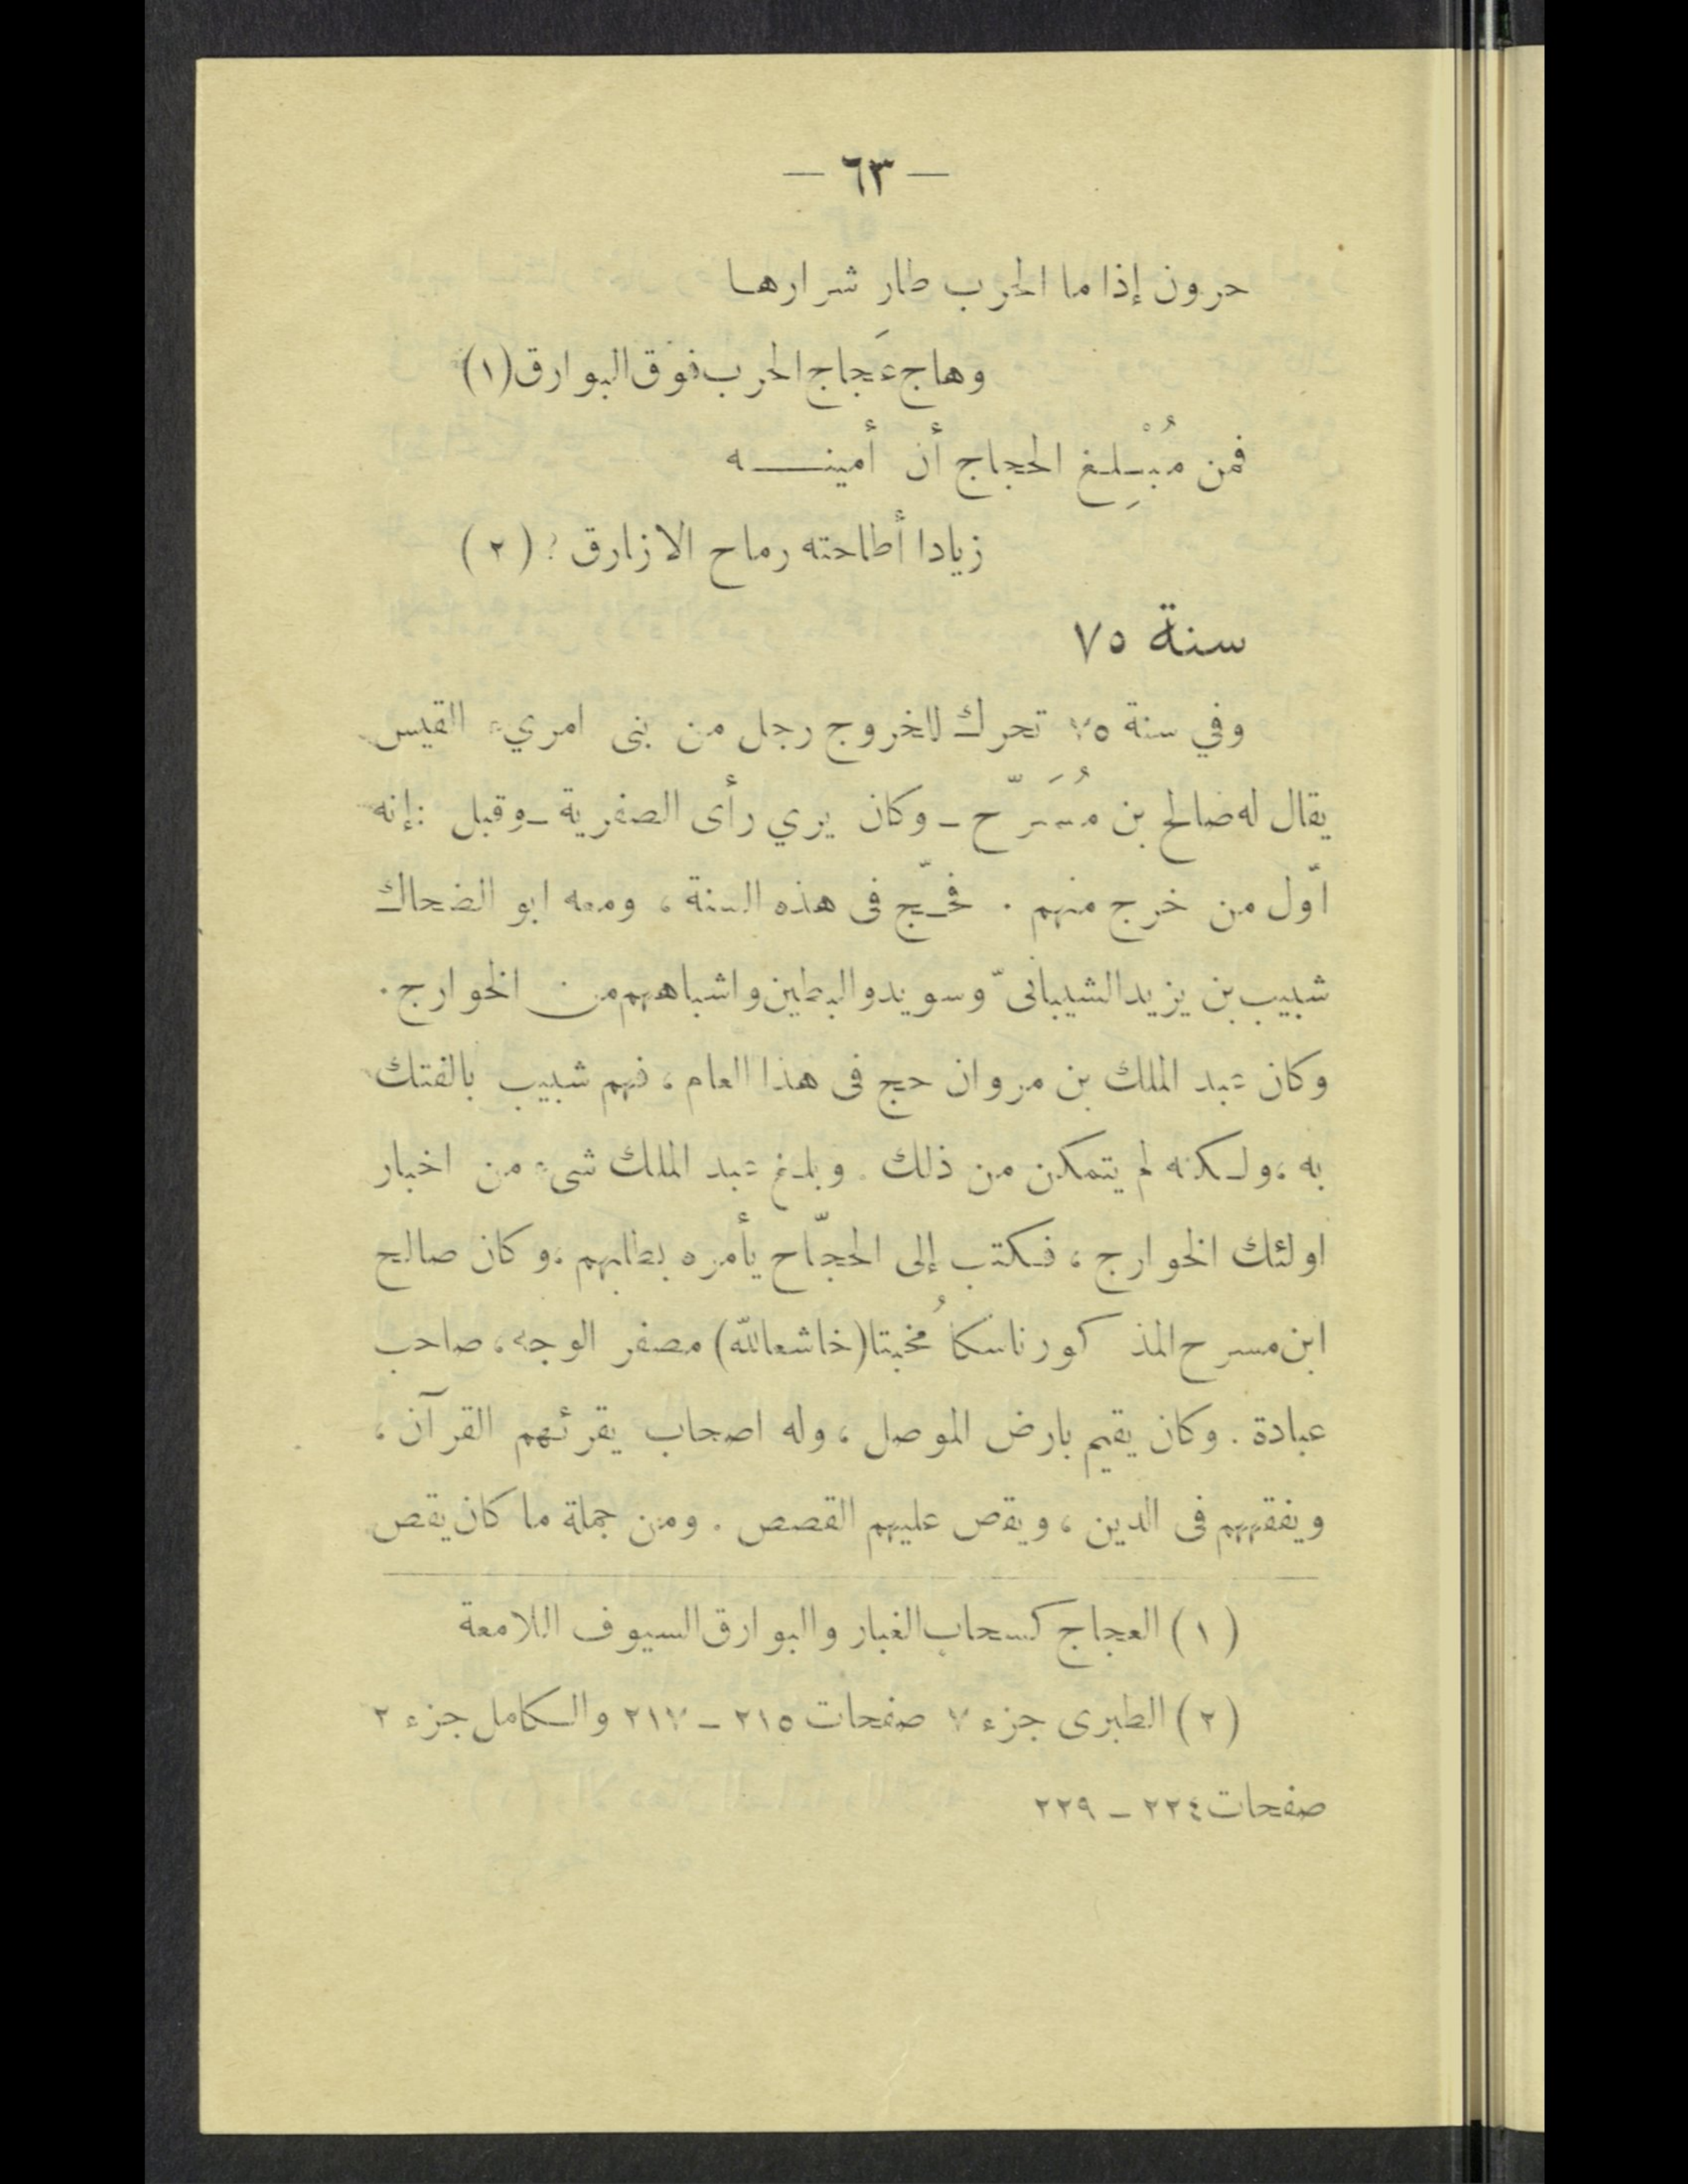 — ٦٣ —
حرون إذا ما الحرب طار شرارها
وهاج عَجاج الحرب فوق البوارق (١)
فمن مُبْلِغ الحجاج أن أمينـــــه
زيادا أطاحته رماح الازارق ؟ (٢)
سنة ٧٥
وفي سنة ٧٥ تحرك للخروج رجل من بنى امريء القيس
يقال له صالح بن مُسَرّح ـ وكان يري رأى الصفرية ـ وقيل : إنه
اوّل من خرج منهم . فحـجّ فى هذه السنة ، ومعه ابو الضحاك
شبيب بن يزيد الشيبانىّ وسويد والبطين واشباههم من الخوارج .
وكان عبد الملك بن مروان حج فى هذا العام ، فهم شبيب بالفتك
به ، ولـكنه لم يتمكن من ذلك . وبلـغ عبد الملك شىء من اخبار
اولئك الخوارج ، فـكتب إلى الحجّاح يأمره بطلبهم . وكان صالح
ابن مسرح المذكور ناسكا مُخبتا (خاشعا لله) مصفر الوجه ، صاحب
عبادة . وكان يقيم بارض الموصل ، وله اصحاب يقرئهم القرآن ،
ويفقههم فى الدين ، ويقص عليهم القصص . ومن جملة ما كان يقص
(١) العجاج كسحاب الغبار والبوارق السيوف اللامعة
(٢) الطبرى جزء ٧ صفحات ٢١٥ ـ ٢١٧ والـكامل جزء ٢
صفحات ٢٢٤ ـ ٢٢٩